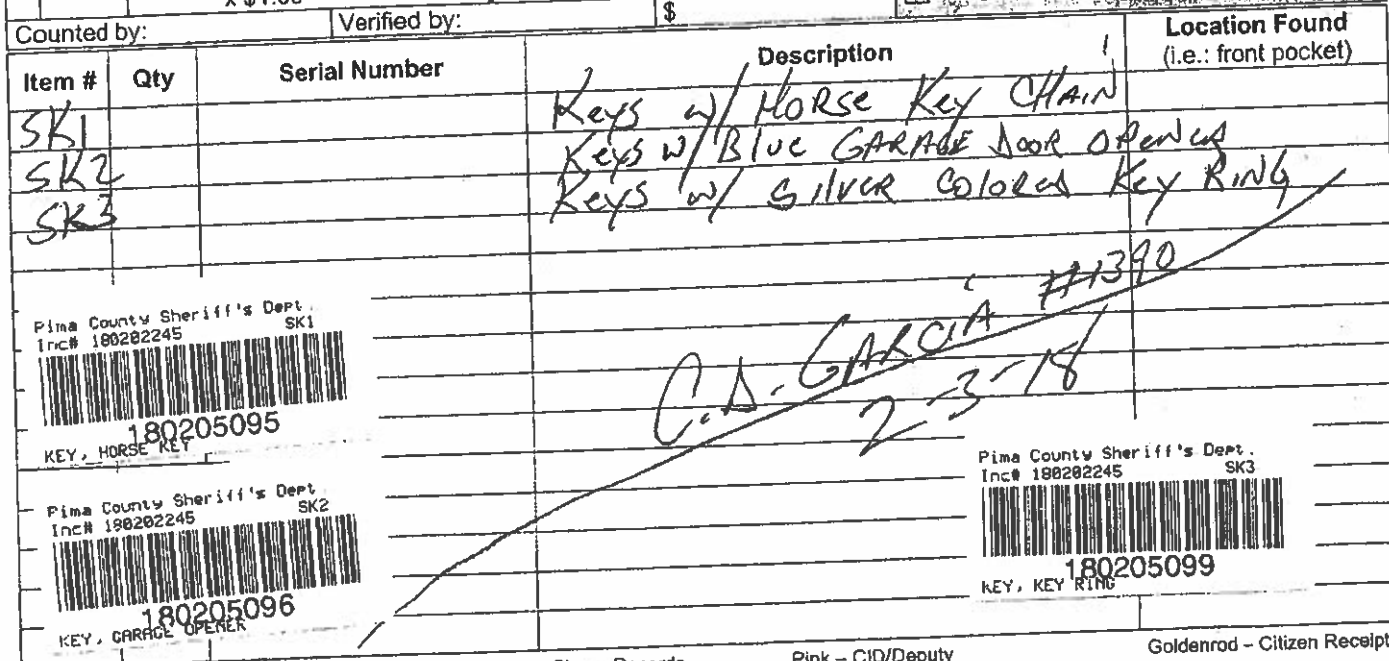 x $1.00
Counted by: Verified by: $
Item # Qty Serial Number Description Location Found
(i.e.: front pocket)
SK1 Keys w/ HORSE Key CHAIN
SK2 Keys w/ Blue GARAGE DOOR OPENER
SK3 Keys w/ SILVER COLORED Key RING
C.D. GARCIA #1390
2-3-18
Pima County Sheriff's Dept.
Inc# 180202245 SK1
180205095
KEY, HORSE KEY
Pima County Sheriff's Dept.
Inc# 180202245 SK2
180205096
KEY, GARAGE OPENER
Pima County Sheriff's Dept.
Inc# 180202245 SK3
180205099
KEY, KEY RING
Records Pink – CID/Deputy Goldenrod – Citizen Receipt